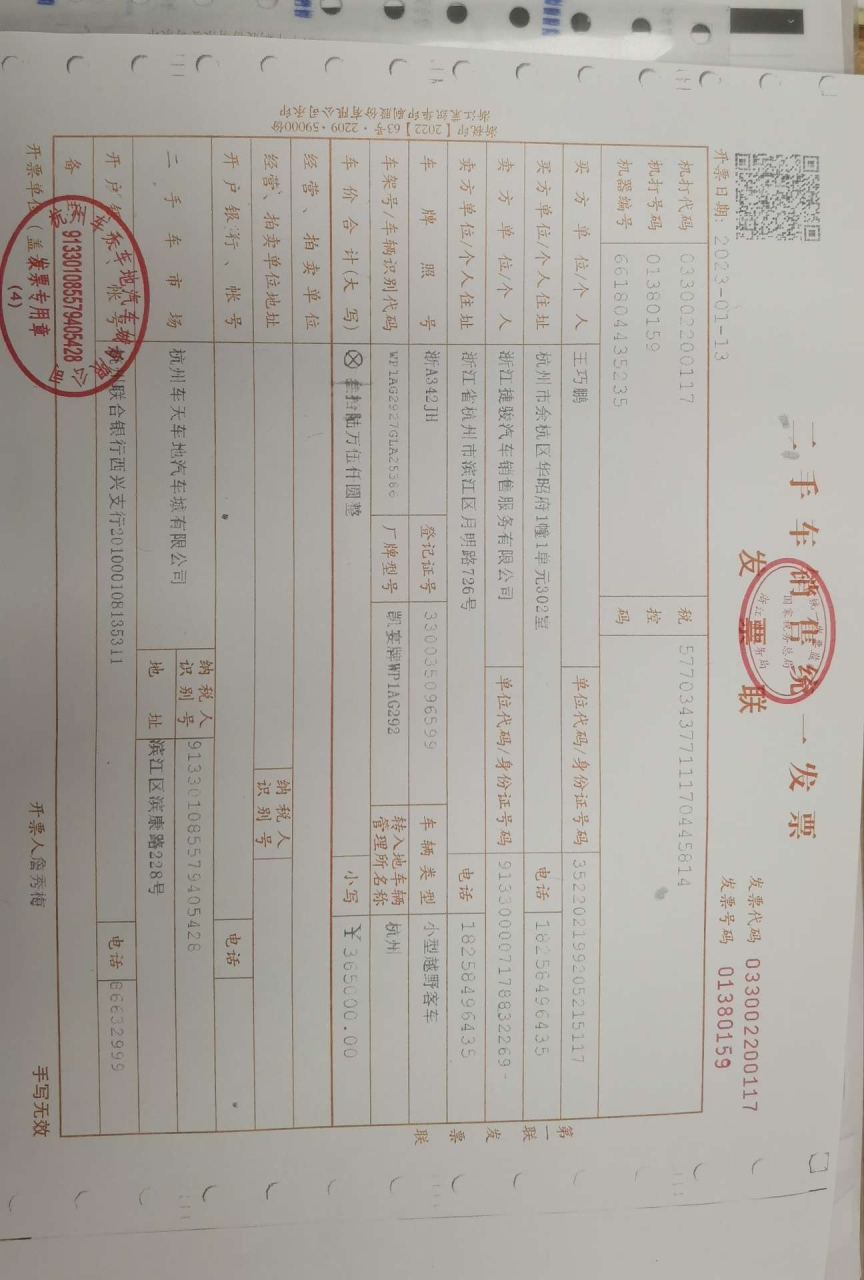 二手车销售统一发票
发票联
发票代码 033002200117
发票号码 01380159
开票日期: 2023-01-13
机打代码 033002200117
机打号码 01380159
机器编号 661804435235
税控码 57703437711170445814
买方单位/个人 王巧鹏 单位代码/身份证号码 352202199205215117
买方单位/个人住址 杭州市余杭区华昭府1幢1单元302室 电话 18258496435
卖方单位/个人 浙江捷骏汽车销售服务有限公司 单位代码/身份证号码 913300007178832269
卖方单位/个人住址 浙江省杭州市滨江区月明路726号 电话 18258496435
车牌照号 浙A342JH 登记证号 330035096599 车辆类型 小型越野客车
车架号/车辆识别代码 WP1AG2927GLA25366 厂牌型号 凯宴牌WP1AG292 转入地车辆管理所名称 杭州
车价合计(大写) ⊗叁拾陆万伍仟圆整 小写 ￥365000.00
经营、拍卖单位
经营、拍卖单位地址 纳税人识别号
开户银行、帐号 电话
二手车市场 杭州车天车地汽车城有限公司 纳税人识别号 913301085579405428
地址 滨江区滨康路228号
开户 帐号 联合银行西兴支行201000108135311 电话 86632999
备
开票单位(盖 开票人 詹秀梅 手写无效
第一联 发票联
浙税印【2022】63号·2209·59000份
913301085579405428
发票专用章
(4)
国家税务总局